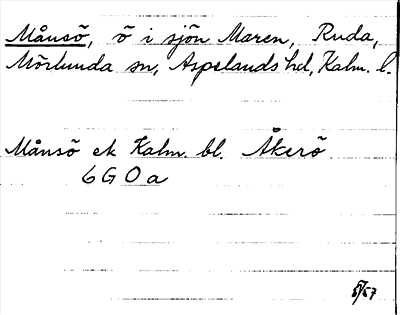 Månsö, ö i sjön Maren, Ruda,
Mörlunda sn, Aspelands hd, Kalm. l.
Månsö ek Kalm. bl. Åkerö
6 G 0 a
5/57